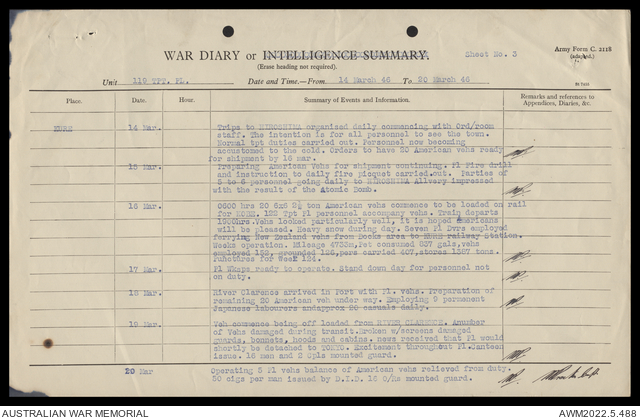 WAR DIARY or INTELLIGENCE SUMMARY.
Sheet No. 3
Army Form C. 2118
(adapted.)
(Erase heading not required).
Unit 119 TPT. PL. Date and Time.—From 14 March 46 To 20 March 46
Place. Date. Hour. Summary of Events and Information. Remarks and references to
Appendices, Diaries, &c.
KURE 14 Mar. Trips to HIROSHIMA organised daily commencing with Ord/room
staff. The intention is for all personnel to see the town.
Normal tpt duties carried out. Personnel now becoming
accustomed to the cold. Orders to have 20 American vehs ready
for shipment by 16 mar.
15 Mar. Preparing American Vehs for shipment continuing. Pl Fire drill
and instruction to daily fire picquet carried.out. Parties of
5 to 6 personnel going daily to HIROSHIMA Allvery impressed
with the result of the Atomic Bomb.
16 Mar. 0600 hrs 20 6x6 2½ ton American vehs commence to be loaded on rail
for KOBE. 122 Tpt Pl personnel accompany vehs. Train departs
1900hrs.Vehs looked particularly well, it is hoped Americans
will be pleased. Heavy snow during day. Seven Pl Dvrs employed
ferrying New Zealand vehs from Docks area to KURE railway Station.
Weeks operation. Mileage 4733m, Pet consumed 837 gals, vehs
employed 152, grounded 126, pers carried 407, stores 1387 tons.
Punctures for Week 124.
17 Mar. Pl Wksps ready to operate. Stand down day for personnel not
on duty.
18 Mar. River Clarence arrived in Port with Pl. vehs. Preparation of
remaining 20 American veh under way. Employing 9 permanent
Japanese labourers andapprox 20 casuals daily.
19 Mar. Veh commence being off loaded from RIVER CLARENCE. Anumber
of Vehs damaged during transit.Broken w/screens damaged
guards, bonnets, hoods and cabins. news received that Pl would
shortly be detached to TOKYO. Excitement throughout Pl.Canteen
issue. 16 man and 2 Cpls mounted guard.
20 Mar Operating 5 Pl vehs balance of American vehs relieved from duty.
50 cigs per man issued by D.I.D. 10 O/hs mounted guard.
AUSTRALIAN WAR MEMORIAL
AWM2022.5.488